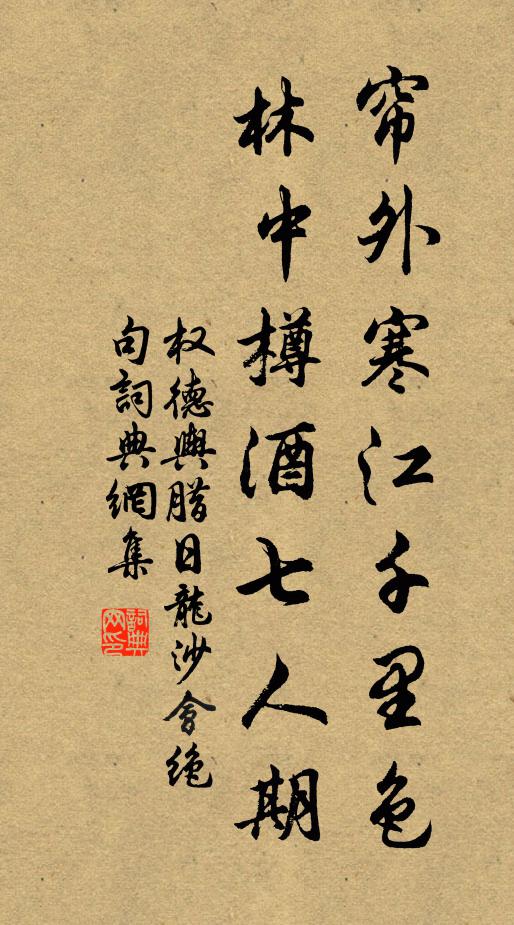 帘外寒江千里色
林中樽酒七人期
权德舆腊日龍沙會绝
句詞典網集
詞典
网印